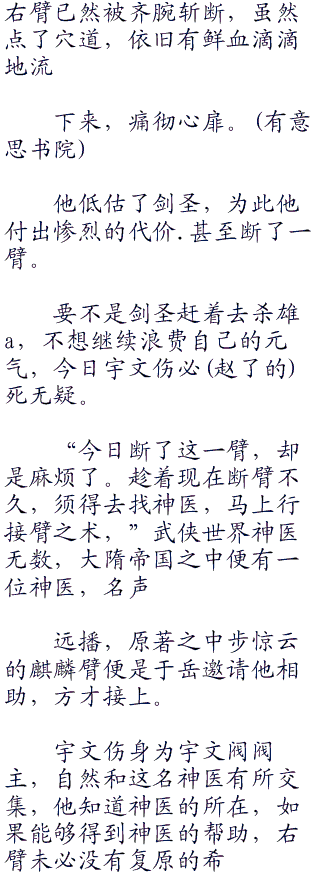 右臂已然被齐腕斩断，虽然
点了穴道，依旧有鲜血滴滴
地流
下来，痛彻心扉。(有意
思书院)
他低估了剑圣，为此他
付出惨烈的代价.甚至断了一
臂。
要不是剑圣赶着去杀雄
a，不想继续浪费自己的元
气，今日宇文伤必(赵了的)
死无疑。
“今日断了这一臂，却
是麻烦了。趁着现在断臂不
久，须得去找神医，马上行
接臂之术，”武侠世界神医
无数，大隋帝国之中便有一
位神医，名声
远播，原著之中步惊云
的麒麟臂便是于岳邀请他相
助，方才接上。
宇文伤身为宇文阀阀
主，自然和这名神医有所交
集，他知道神医的所在，如
果能够得到神医的帮助，右
臂未必没有复原的希